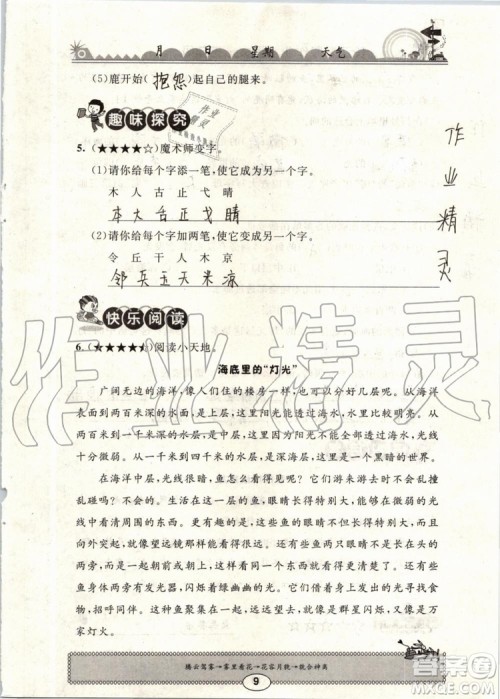 月 日 星期 天气
(5)鹿开始(抱怨)起自己的腿来。
趣味探究
5. (★★★★☆)魔术师变字。
(1)请你给每个字添一笔,使它成为另一个字。
木 人 古 止 弋 晴
本大舌正戈晴
(2)请你给每个字加两笔,使它变成另一个字。
令 丘 干 人 木 京
邻兵五天米凉
作业精灵
快乐阅读
6. (★★★★★)阅读小天地。
海底里的“灯光”
广阔无边的海洋,像人们住的楼房一样,也可以分好几层。从海洋
表面到两百米深的水层,是上层,在这里阳光能透过海水,水里比较明亮。从
两百米到一千米深的水层,是中层,在这里阳光不能透过海水,光线
十分微弱。从一千米到四千米的水层,是深层,这里是一个黑暗的世界。
在海洋中层,光线很暗,鱼怎么能看得见呢?它们游来游去怎么不会乱
碰乱撞呢?不会的。生活在这一层的鱼,眼睛长得特别大,能够在微弱的光线
中看清周围的东西。更有趣的是,这些鱼的眼睛不但长得特别大,而且
向外突起,就像望远镜那样能看得很远。这些鱼从不同的方向看东西,
而是一起朝前或朝上,这样就能使两只眼睛同时看到一个东西。还有些
鱼身体两旁的发光器,闪烁着绿幽幽的光。它们依靠自身的光寻找食物,
招呼同伴。这样的鱼聚集在一起,成了光的海洋,有的像是群星闪烁,有的像是万
家灯火。
腾云驾雾→雾里看花→花容月貌→貌合神离
9
作业精灵